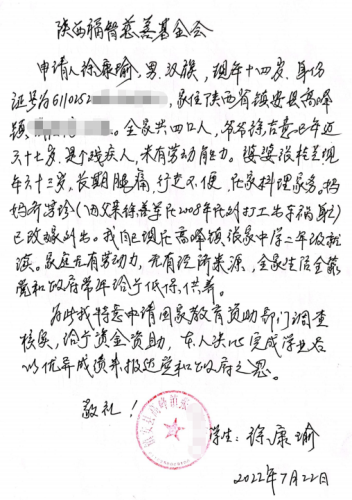 陕西福智慈善基金会
申请人徐康瑜，男，汉族，现年十四岁，身份
证号为6110252，家住陕西省镇安县高峰
镇。全家共四口人，爷爷徐吉意已年近
六十七岁，是个残疾人，未有劳动能力。婆婆张桂兰现
年六十三岁，长期腿痛，行走不便，在家料理家务。
妈(因父亲徐善军在2008年在外打工出事祸身亡)
已改嫁到外。我自己现在高峰镇张家中学二年级就
读。家庭无有劳动力，无有经济来源，全家生活全靠
党和政府常年给予低保供养。
为此我特意申请国家教育资助部门调查
核实，给予资金资助，本人决心完成学业后
以优异成绩来报达党和政府之恩。
敬礼！
学生：徐康瑜
2022年7月22日